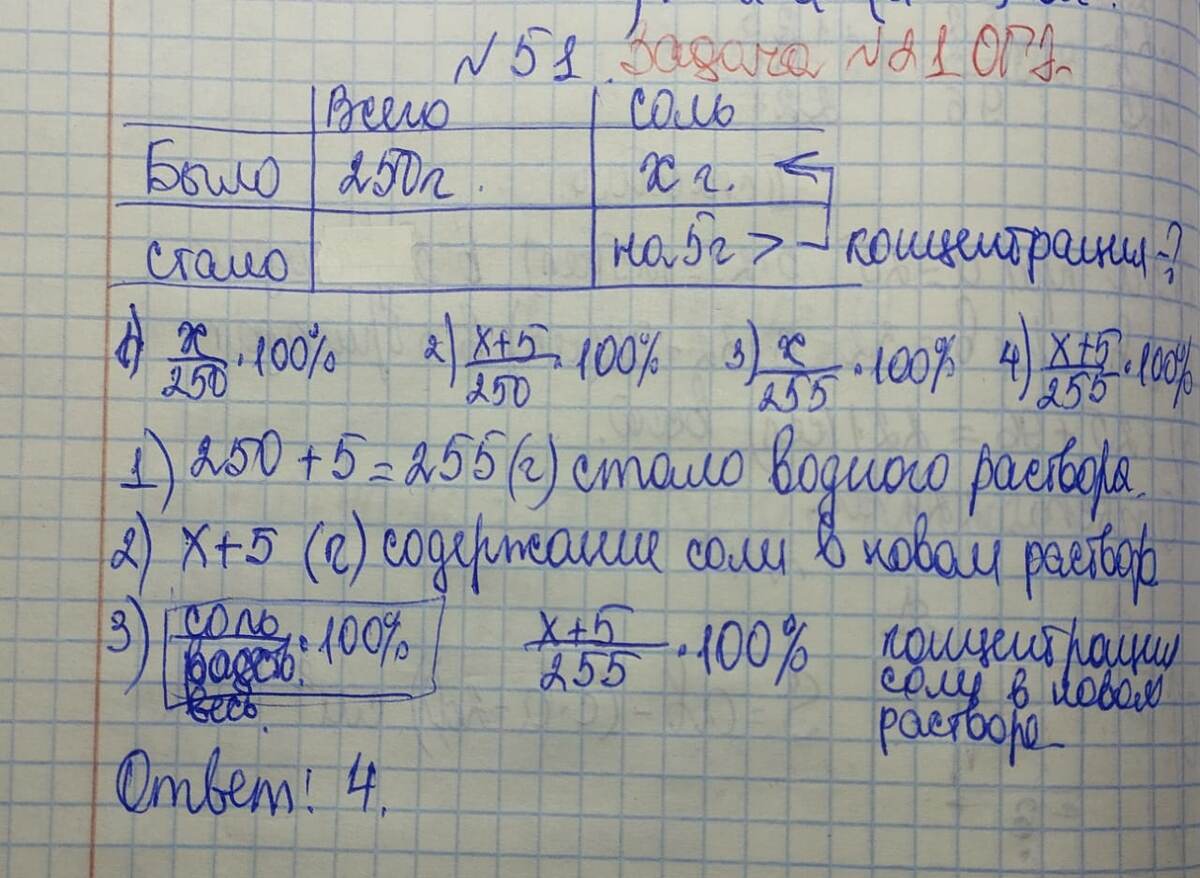 №51. Задача №21 ОГЭ.
Всего соль
Было 250г. х г.
стало на 5г > концентрация-?
1) x/250 · 100% 2) x+5/250 · 100% 3) x/255 · 100% 4) x+5/255 · 100%
1) 250 + 5 = 255 (г) стало водного раствора.
2) x+5 (г) содержание соли в новом раствор
3) соль/раств. весь. · 100% x+5/255 · 100% концентрация
соли в новом
раствора
Ответ: 4.